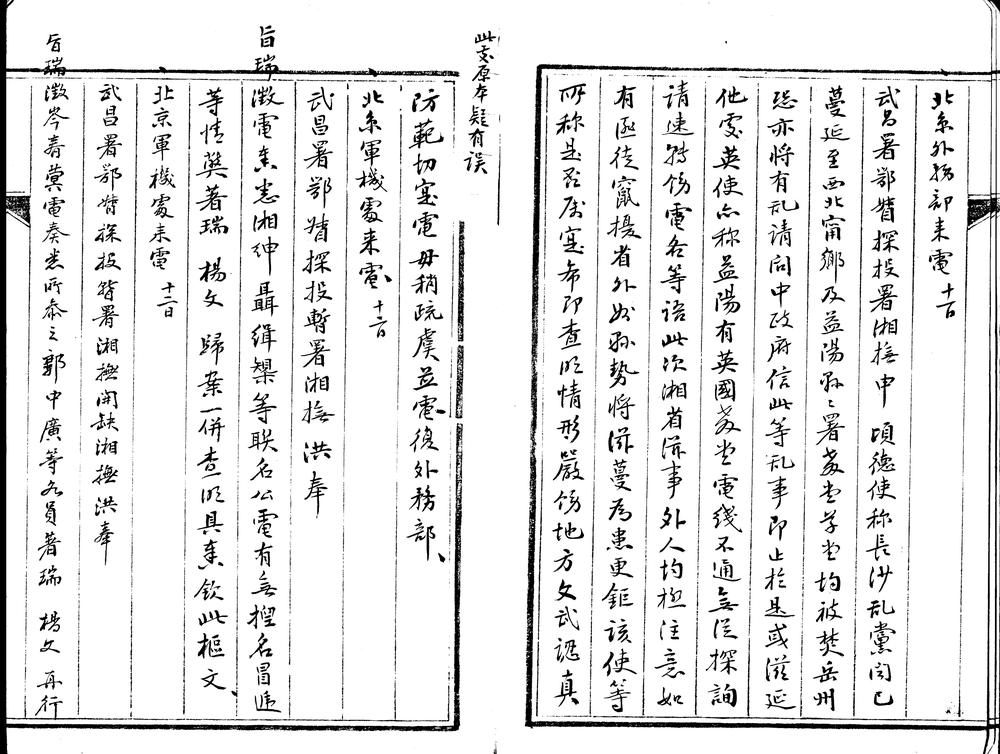 北京外務部来電 十一日
武昌署鄂督探投署湘撫申 頃德使称長沙乱黨闻已
蔓延至西北甯鄉及益陽縣〻署教堂学堂均被焚岳州
恐亦将有乱请问中政府信此等乱事即止於是或滋延
他處英使亦称益陽有英國教堂電线不通無従探詢
请速转饬電各等语此次湘省滋事外人均极注意如
有匪徒竄擾省外州縣势将滋蔓为患更鉅該使等
所称是否属寔希即查明情形嚴饬地方文武認真
防範切寔電毋稍疏虞並電復外務部、
此変原本疑有误
北京軍機處来電 十二日
武昌署鄂督探投暫署湘撫洪 奉
旨瑞澂電奏悉湘绅聶缉椝等联名公電有無捏名冒遞
等情英著瑞 楊文 歸案一併查明具奏钦此枢文、
北京軍機處来電 十二日
武昌署鄂督探投暫署湘撫開缺湘撫洪奉
旨瑞澂岑春蓂電奏悉所参之郭中廣等各員著瑞 楊文 再行